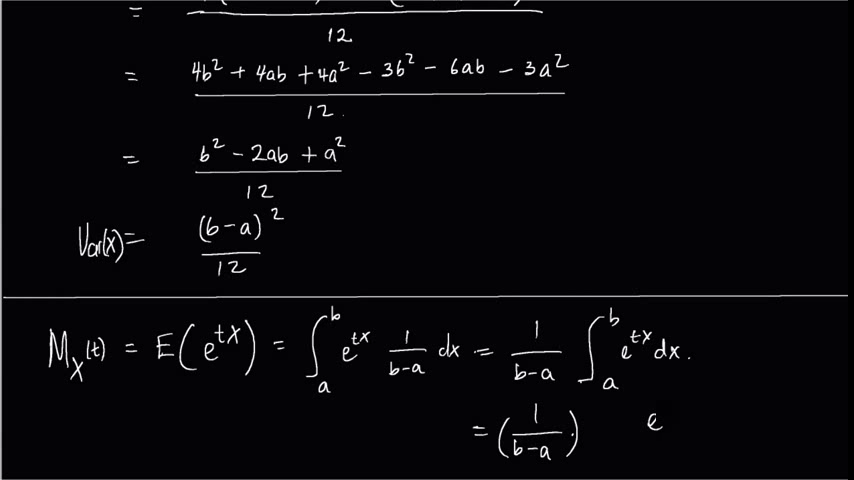 =
12
= 4b² + 4ab + 4a² - 3b² - 6ab - 3a² / 12.
= b² - 2ab + a² / 12
Var(x) = (b-a)² / 12
M_X(t) = E(e^{tX}) = ∫_a^b e^{tx} 1/(b-a) dx = 1/(b-a) ∫_a^b e^{tx} dx.
= (1/(b-a)). e